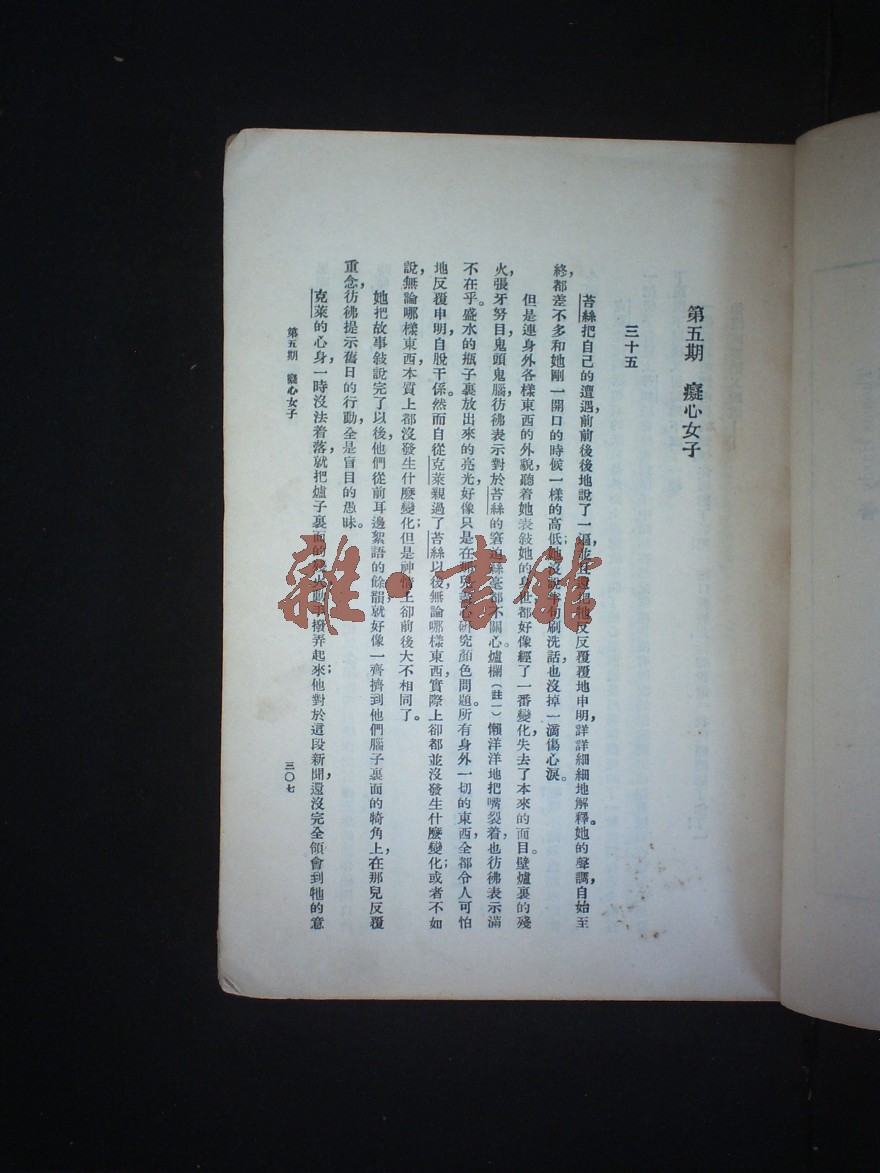 第五期 癡心女子
三十五
苔絲把自己的遭遇，前前後後地說了一遍；並且還反反覆覆地申明，詳詳細細地解釋。她的聲調，自始至
終，都差不多和她剛一開口的時候一樣的高低；她沒說半句刷洗話，也沒掉一滴傷心淚。
但是連身外各樣東西的外貌，聽着她表敍她的身世，都好像經了一番變化，失去了本來的面目。壁爐裏的殘
火，張牙努目，鬼頭鬼腦，彷彿表示對於苔絲的窘迫，絲毫都不關心。爐欄（註一）懶洋洋地把嘴裂着，也彷彿表示滿
不在乎。盛水的瓶子裏放出來的亮光，好像只是在那兒研究顏色問題。所有身外一切的東西，全都令人可怕
地反覆申明，自脫干係。然而自從克萊親過了苔絲以後，無論哪樣東西，實際上卻都並沒發生什麼變化；或者不如
說，無論哪樣東西，本質上都沒發生什麼變化；但是神情上卻前後大不相同了。
她把故事敍說完了以後，他們從前耳邊絮語的餘韻，就好像一齊擠到他們腦子裏面的犄角上，在那兒反覆
重念，彷彿提示舊日的行動，全是盲目的愚昧。
克萊的心身，一時沒法着落，就把爐子裏面的撥弄起來；他對於這段新聞，還沒完全領會到牠的意
第五期 癡心女子
三〇七
雜·書館